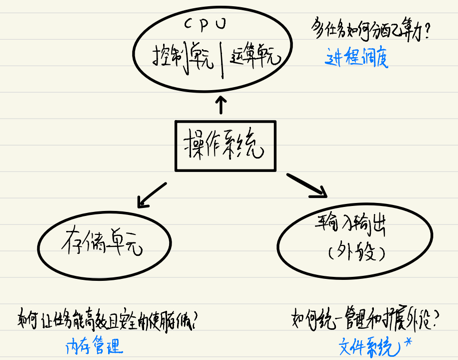 CPU
控制单元|运算单元
多任务如何分配算力?
进程调度
操作系统
存储单元
输入输出
(外设)
如何让任务能高效且安全的使用存储?
内存管理
如何统一管理和扩展外设?
文件系统*